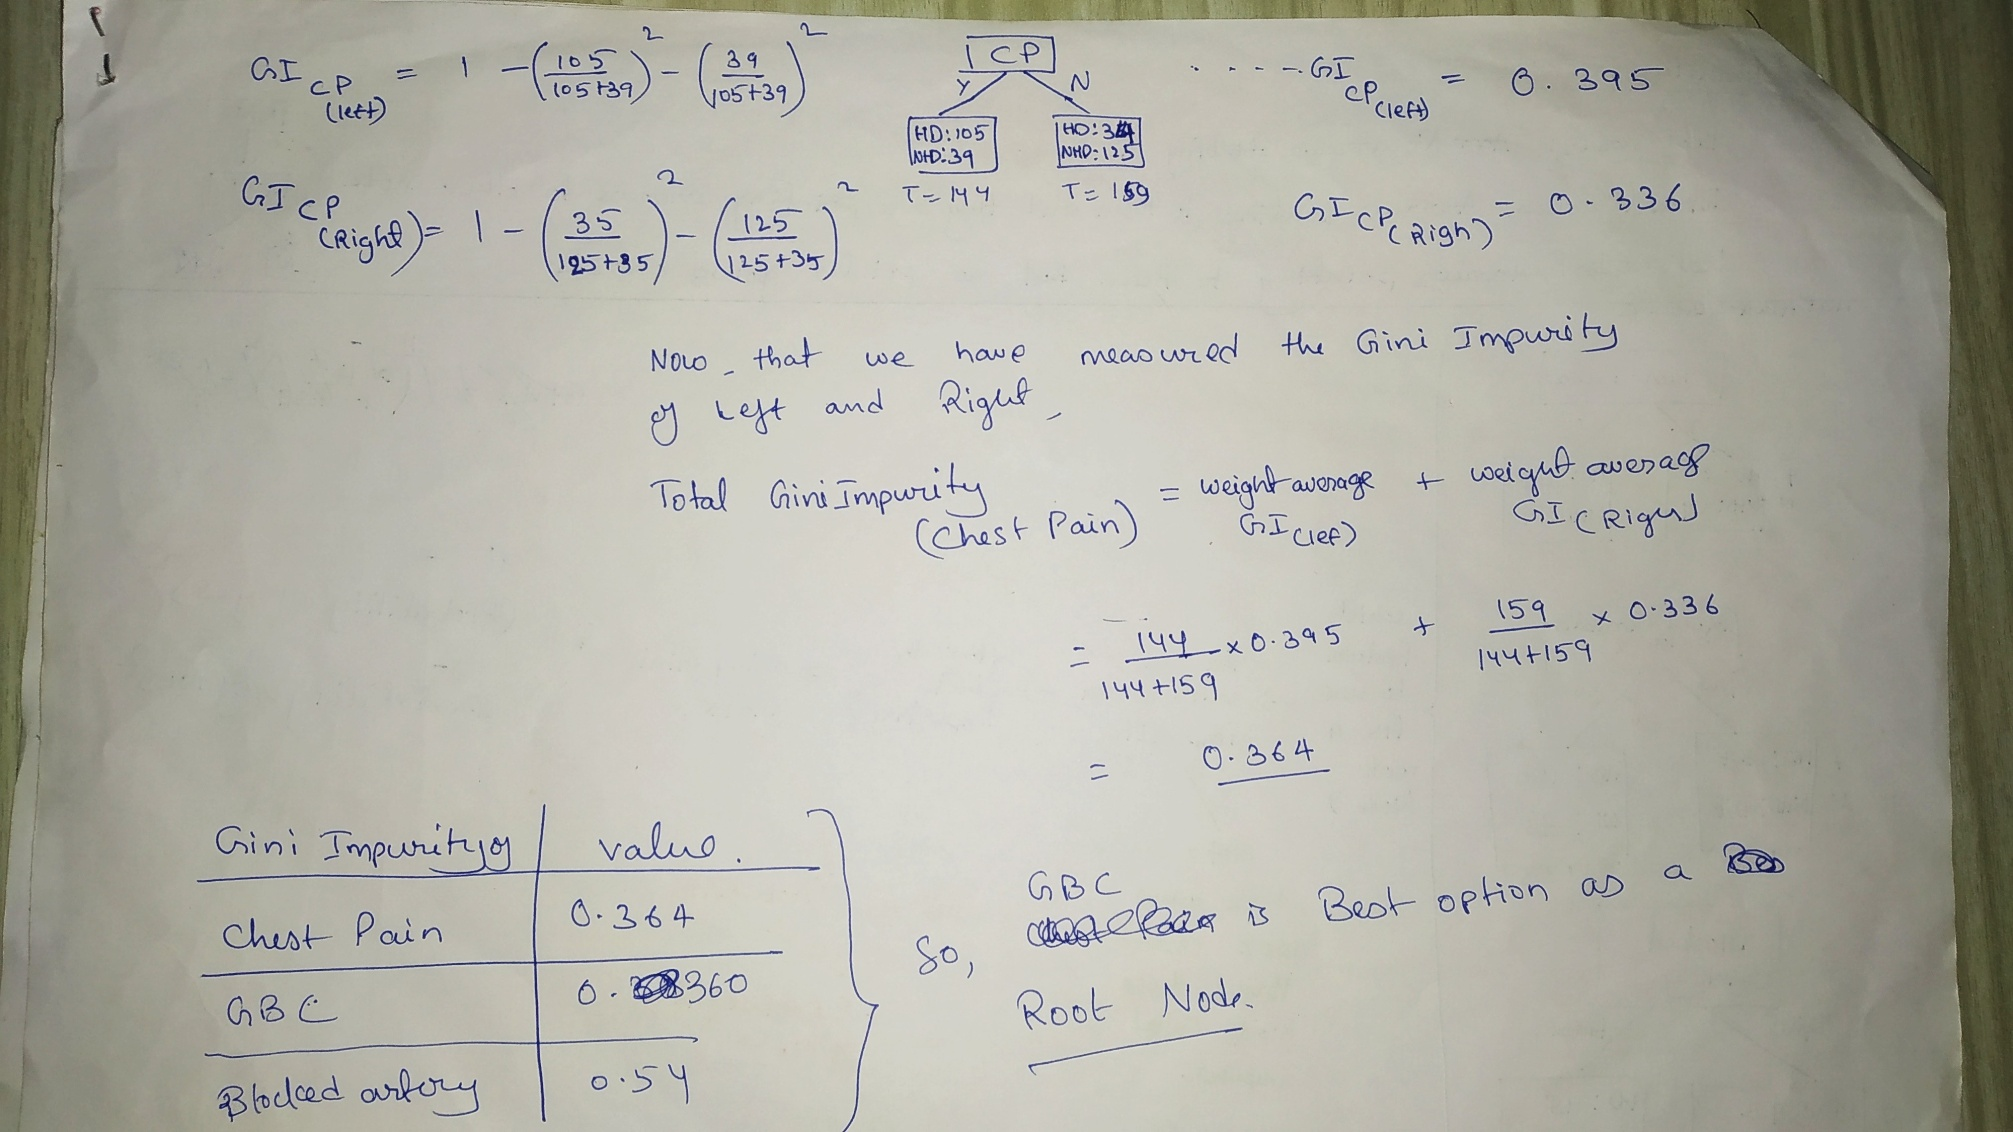 GI CP (left) = 1 - (105/105+39)² - (39/105+39)²
CP
Y N
HD:105 HD:34
NHD:39 NHD:125
T=144 T=159
....GI CP(left) = 0.395
GI CP (Right) = 1 - (35/125+35)² - (125/125+35)²
GI CP(Righ) = 0.336
Now, that we have measured the Gini Impurity
of Left and Right,
Total Gini Impurity (Chest Pain) = weight average GI (lef) + weight average GI (Right)
= 144/144+159 × 0.395 + 159/144+159 × 0.336
= 0.364
Gini Impurity of value.
Chest Pain 0.364
GBC 0.360
Blocked artery 0.54
So, GBC is Best option as a
Root Node.